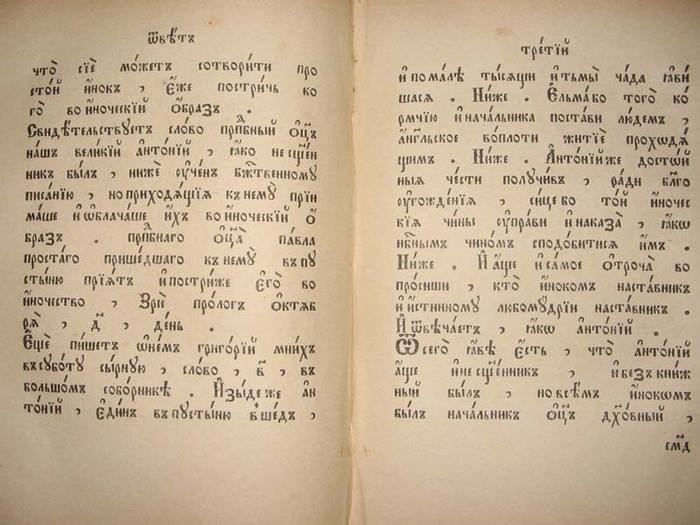 ѿвѣ́тъ
что̀ сїѐ мо́жетъ сотвори́ти про
сто́й и҆́нокъ , є҆́же постри́чь ко
го̀ во и҆но́ческїй ѻ҆́бразъ .
Свидѣ́тельствуетъ сло́во прпⷣбный ѻ҆ц҃ъ
на́шъ вели́кїй а҆нто́нїй , ꙗ҆́кѡ не сщ҃е́н
никъ бы́лъ , нижѐ ᲂу҆че́нъ бж҃е́ственному
писа́нїю , но приходѧ́щїѧ къ нему̀ прїи
ма́ше и҆ ѡ҆блача́ше и҆̀хъ во и҆но́ческїй ѻ҆́
бразъ . прпⷣбнаго ѻ҆ц҃а̀ па́вла
проста́го прише́дшаго къ нему̀ въ пу
сты́ню прїѧ́тъ и҆ постри́же є҆го̀ во
и҆но́чество , Зрѝ проло́гъ ѻ҆ктѧ́б
рѧ̀ , д҃ , де́нь .
Є҆щѐ пи́шетъ ѡ҆ не́мъ григо́рїй мни́хъ
въ суббо́ту сы́рную , сло́во , в҃ , въ
большо́мъ собо́рникѣ . И҆зы́де же а҆н
то́нїй , є҆ди́нъ въ пусты́ню в̾ше́дъ ,
тре́тїй
и҆ по ма́лѣ ты́сѧщи и҆ тьмы̀ ча́да ꙗ҆ви́
шасѧ . Ни́же . Є҆льма́ бо того̀ ко́
рмчїю и҆ нача́льника поста́ви лю́демъ ,
а҆́нг҃льское во пло́ти житїѐ проходѧ́
щимъ . Ни́же . А҆нто́нїй же досто́й
ныѧ че́сти получи́въ , ра́ди бл҃го
ᲂу҆гожде́нїѧ , си́це бо то́й и҆но́чес
кїѧ чи́ны ᲂу҆пра́ви и҆ наказа̀ , ꙗ҆́кѡ
нб҃нымъ чи́номъ сподо́битисѧ и҆̀мъ .
Ни́же . И҆ а҆́ще и҆ са́мое ѻ҆троча̀ во
про́сиши , кто̀ и҆́нокомъ наста́вникъ
и҆ и҆́стинному любому́дрїи наста́вникъ .
И҆ ѿвѣча́етъ , ꙗ҆́кѡ а҆нто́нїй .
Ѿ сегѡ̀ ꙗ҆́вѣ є҆́сть , что̀ а҆нто́нїй
а҆́ще и҆ не сщ҃е́нникъ , и҆ безъ кни́ж
ный бы́лъ , но всѣ́мъ и҆́нокѡмъ
бы́лъ нача́льникъ ѻ҆ц҃ъ дх҃о́вный ,
см҃д